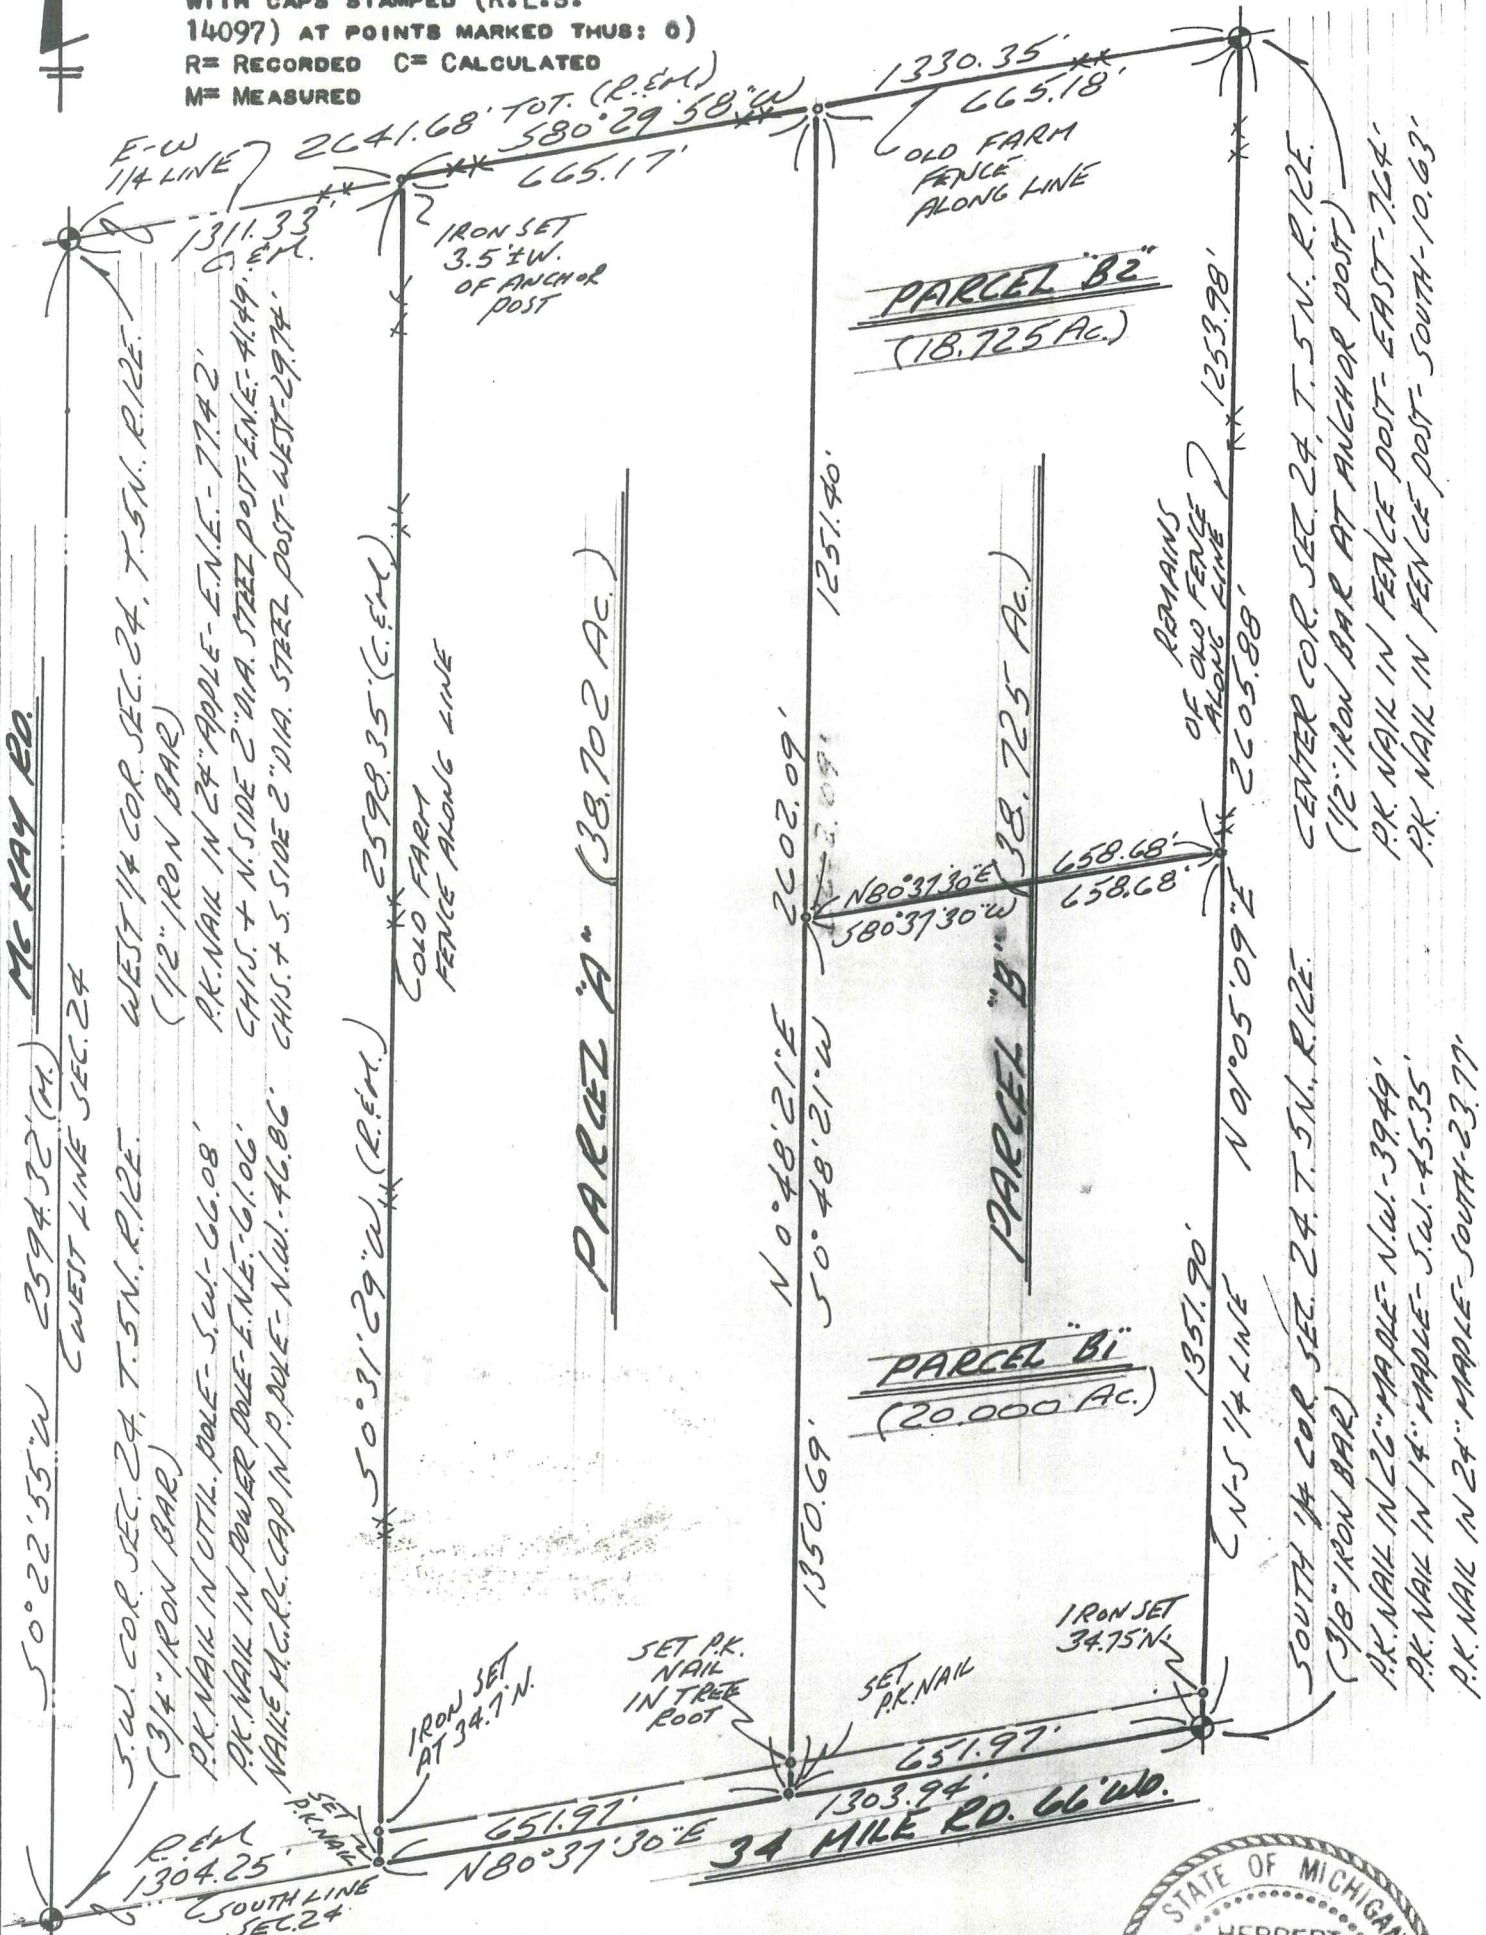 WITH CAPS STAMPED (R.L.S.
14097) AT POINTS MARKED THUS: o)
R= RECORDED C= CALCULATED
M= MEASURED
E-W
1/4 LINE
2641.68' TOT. (R.&M.)
S80°29'58"W
665.17'
1330.35'
665.18'
1311.33'
C.&M.
IRON SET
3.5'±W.
OF ANCHOR
POST
OLD FARM
FENCE
ALONG LINE
PARCEL "B2"
(18.725 Ac.)
McKAY RD.
S0°22'55"W 2594.32'(M.)
WEST LINE SEC.24
WEST 1/4 COR. SEC.24, T.5N., R.12E.
(1/2" IRON BAR)
P.K.NAIL IN 24" APPLE-E.N.E.-77.42'
CHIS. + N. SIDE 2" DIA. STEEL POST-E.N.E.-41.49'
CHIS. + S. SIDE 2" DIA. STEEL POST-WEST-29.74'
S.W. COR. SEC.24, T.5N., R.12E.
(3/4" IRON BAR)
P.K.NAIL IN UTIL. POLE-S.W.-66.08'
P.K.NAIL IN POWER POLE-E.N.E.-61.06'
NAIL & M.C.R.C. CAP IN P. POLE-N.W.-46.86'
S0°31'29"W (R.&M.) 2598.35'(C.&M.)
OLD FARM
FENCE ALONG LINE
PARCEL "A" (38.702 Ac.)
1251.40'
2602.09'
N0°48'21"E
S0°48'21"W
1350.69'
PARCEL "B" (38.725 Ac.)
N80°37'30"E 658.68'
S80°37'30"W 658.68'
REMAINS
OF OLD FENCE
ALONG LINE
1253.98'
2605.88'
N01°05'09"E
1351.90'
N-S 1/4 LINE
CENTER COR. SEC.24, T.5N., R.12E.
(1/2" IRON BAR AT ANCHOR POST)
P.K. NAIL IN FENCE POST-EAST-7.64'
P.K. NAIL IN FENCE POST-SOUTH-10.63'
SOUTH 1/4 COR. SEC. 24, T.5N., R.12E.
(3/8" IRON BAR)
P.K.NAIL IN 26" MAPLE-N.W.-39.49'
P.K.NAIL IN 14" MAPLE-S.W.-45.35'
P.K. NAIL IN 24" MAPLE-SOUTH-23.77'
PARCEL "B1"
(20.000 Ac.)
IRON SET
34.75'N.
SET P.K.
NAIL
IN TREE
ROOT
SET
P.K.NAIL
IRON SET
AT 34.7'N.
SET
P.K.NAIL
651.97'
651.97'
N80°37'30"E
1303.94'
34 MILE RD. 66'WD.
R.&M.
1304.25'
SOUTH LINE
SEC.24
STATE OF MICHIGAN
HERBERT